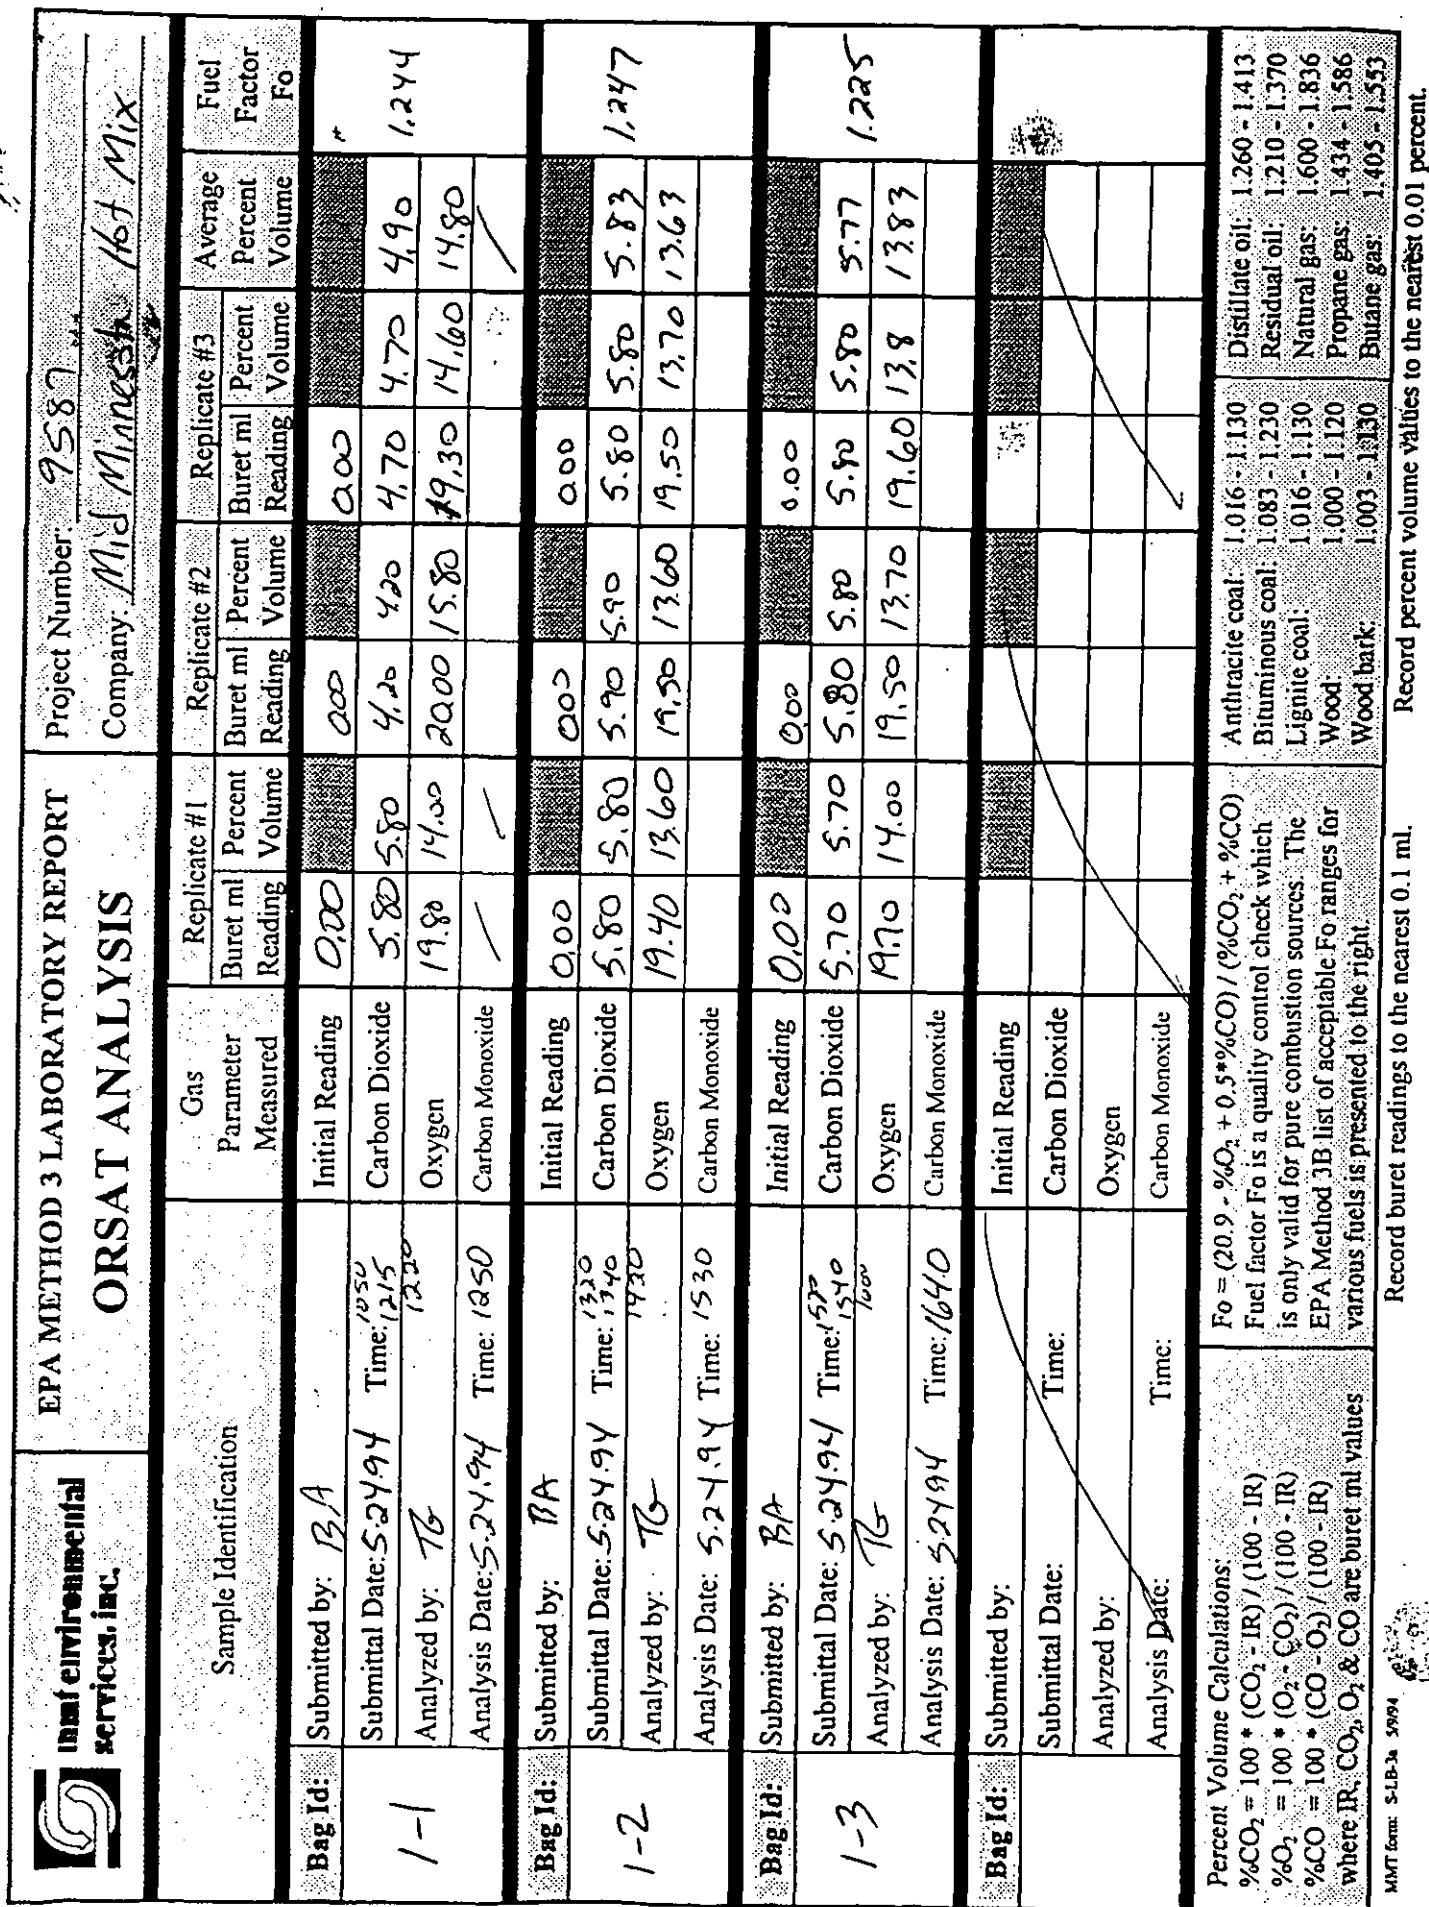 mmt environmental
services, inc.
EPA METHOD 3 LABORATORY REPORT
ORSAT ANALYSIS
Project Number: 9587
Company: Mid Minnesota Hot Mix
Sample Identification
Gas Parameter Measured
Replicate #1
Replicate #2
Replicate #3
Average Percent Volume
Fuel Factor Fo
Buret ml Reading Percent Volume Buret ml Reading Percent Volume Buret ml Reading Percent Volume
Bag Id: 1-1
Submitted by: BA Initial Reading 0.00 000 0.00
Submittal Date: 5.24.94 Time: 1050 1215 Carbon Dioxide 5.80 5.80 4.20 4.20 4.70 4.70 4.90 1.244
Analyzed by: TG 1220 Oxygen 19.80 14.00 20.00 15.80 19.30 14.60 14.80
Analysis Date: 5.24.94 Time: 1250 Carbon Monoxide
Bag Id: 1-2
Submitted by: BA Initial Reading 0.00 000 0.00
Submittal Date: 5.24.94 Time: 1320 1340 Carbon Dioxide 5.80 5.80 5.90 5.90 5.80 5.80 5.83 1.247
Analyzed by: TG Oxygen 19.40 13.60 19.50 13.60 19.50 13.70 13.63
Analysis Date: 5.24.94 Time: 1530 Carbon Monoxide
Bag Id: 1-3
Submitted by: BA Initial Reading 0.00 0.00 0.00
Submittal Date: 5.24.94 Time: 1540 Carbon Dioxide 5.70 5.70 5.80 5.80 5.80 5.80 5.77 1.225
Analyzed by: TG Oxygen 19.70 14.00 19.50 13.70 19.60 13.8 13.83
Analysis Date: 5.24.94 Time: 1640 Carbon Monoxide
Bag Id:
Submitted by: Initial Reading
Submittal Date: Time: Carbon Dioxide
Analyzed by: Oxygen
Analysis Date: Time: Carbon Monoxide
Percent Volume Calculations:
%CO₂ = 100 * (CO₂ - IR) / (100 - IR)
%O₂ = 100 * (O₂ - CO₂) / (100 - IR)
%CO = 100 * (CO - O₂) / (100 - IR)
where IR, CO₂, O₂ & CO are buret ml values
Fo = (20.9 - %O₂ + 0.5*%CO) / (%CO₂ + %CO)
Fuel factor Fo is a quality control check which
is only valid for pure combustion sources. The
EPA Method 3B list of acceptable Fo ranges for
various fuels is presented to the right.
Anthracite coal: 1.016 - 1.130
Bituminous coal: 1.083 - 1.230
Lignite coal: 1.016 - 1.130
Wood 1.000 - 1.120
Wood bark: 1.003 - 1.130
Distillate oil: 1.260 - 1.413
Residual oil: 1.210 - 1.370
Natural gas: 1.600 - 1.836
Propane gas: 1.434 - 1.586
Butane gas: 1.405 - 1.553
MMT form: S-LB-3a 5/9/94
Record buret readings to the nearest 0.1 ml.
Record percent volume values to the nearest 0.01 percent.